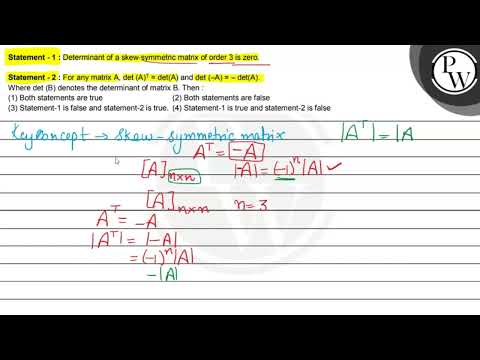 Statement - 1 : Determinant of a skew-symmetric matrix of order 3 is zero.
Statement - 2 : For any matrix A, det (A)ᵀ = det(A) and det (–A) = – det(A).
Where det (B) denotes the determinant of matrix B. Then :
(1) Both statements are true (2) Both statements are false
(3) Statement-1 is false and statement-2 is true. (4) Statement-1 is true and statement-2 is false
PW
Key concept → skew-symmetric matrix |Aᵀ| = |A
Aᵀ = -A
[A]n×n |-A| = (-1)ⁿ|A| ✓
[A]n×n n=3
Aᵀ = -A
|Aᵀ| = |-A|
= (-1)ⁿ|A|
-|A|